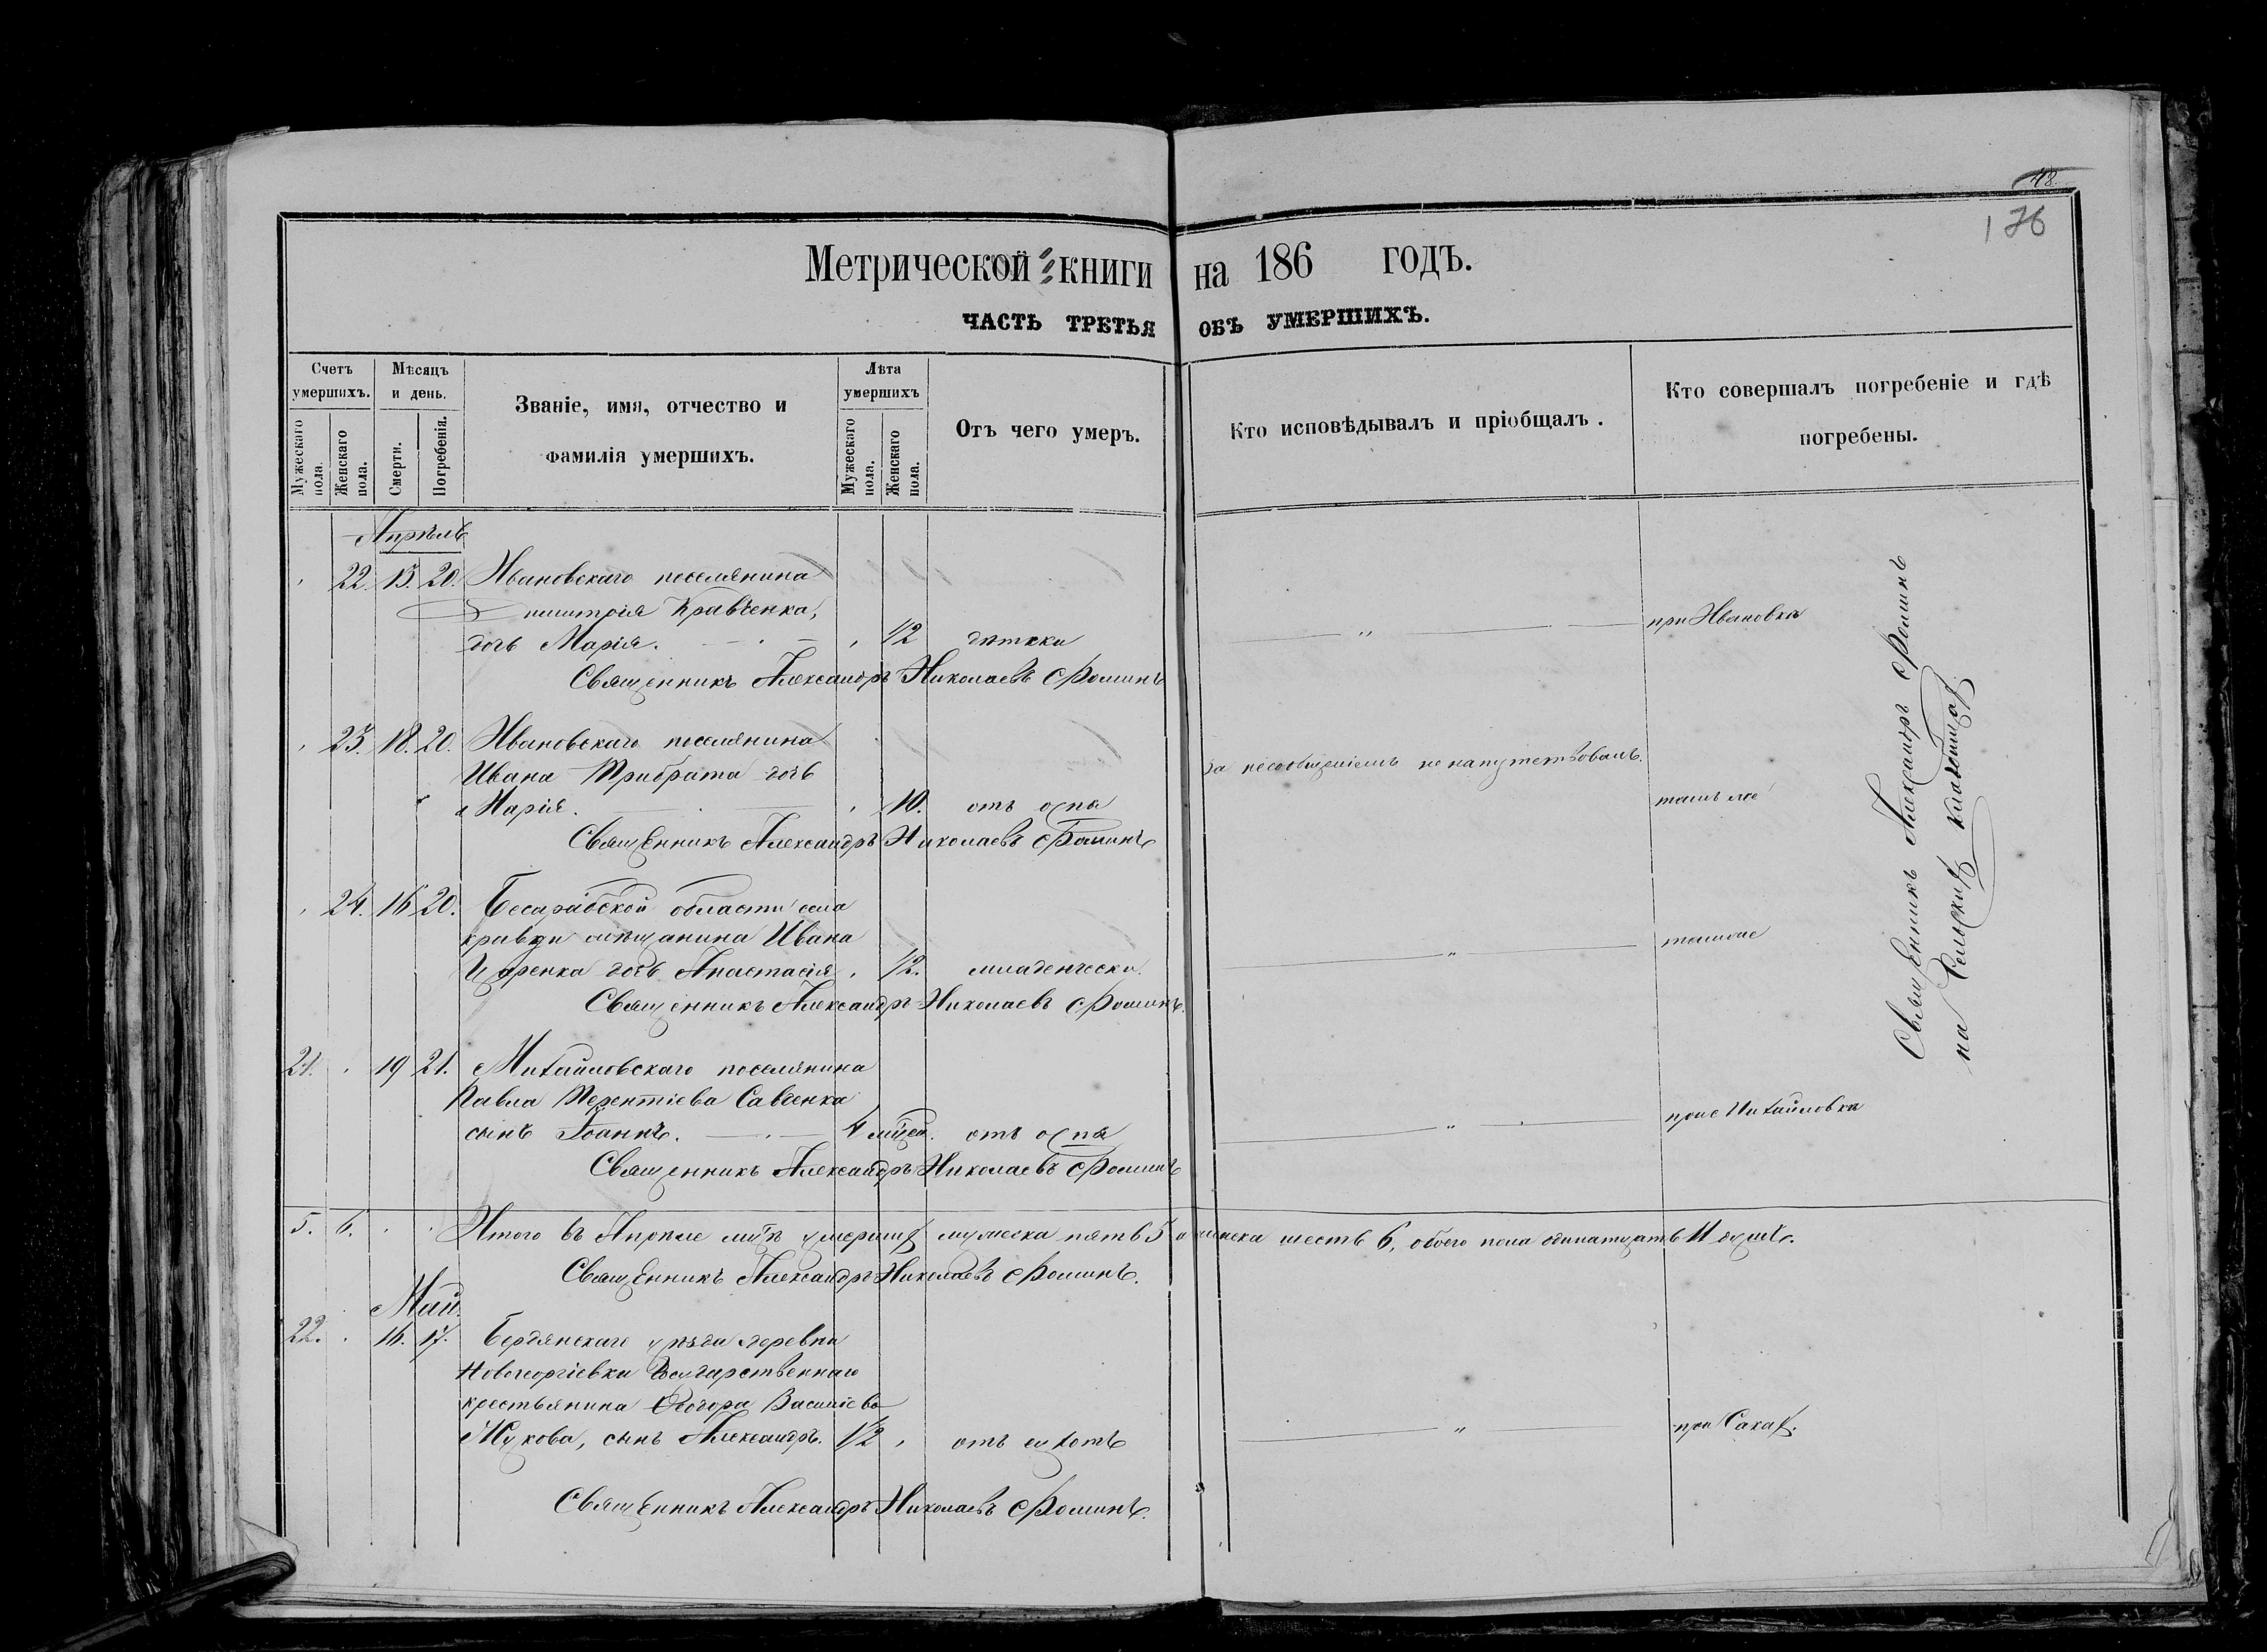 48
176
Метрической книги на 186 годъ.
ЧАСТЬ ТРЕТЬЯ ОБЪ УМЕРШИХЪ.
Счетъ умершихъ.
Мужескаго пола.
Женскаго пола.
Мѣсяцъ и день.
Смерти.
Погребенія.
Званіе, имя, отчество и
фамилія умершихъ.
Лѣта умершихъ
Мужескаго пола.
Женскаго пола.
Отъ чего умеръ.
Кто исповѣдывалъ и пріобщалъ.
Кто совершалъ погребеніе и гдѣ
погребены.
Апрѣль
22. 13. 20. Ивановскаго поселянина
Димитрія Кравченка, при Ивановкѣ
дочь Марія. 1/2
Священникъ Александръ Николаевъ Фоминъ
23. 18. 20. Ивановскаго поселянина
Ивана Трибрата дочь за несообщеніемъ не напутствовалъ.
Марія. 10. отъ оспы тамъ же
Священникъ Александръ Николаевъ Фоминъ
24. 16 20. Бесарабской области села
мѣщанина Ивана тамже
Царенка дочь Анастасія 1/2. младенчески.
Священникъ Александръ Николаевъ Фоминъ.
21. 19 21. Михайловскаго поселянина
Павла Терентіева Савченка при с Михайловкѣ
сынъ Іоаннъ. 4 мцей. отъ оспы
Священникъ Александръ Николаевъ Фоминъ
5. 6. Итого въ Апрѣле мцѣ умершихъ мужеска пять 5 женска шесть 6, обоего пола одинатцать 11 душъ.
Священникъ Александръ Николаевъ Фоминъ.
Май.
22. 16. 17. Бердянскаго уѣзда деревни
Новогеоргіевки Государственнаго
крестьянина Ѳеодора Василіева
Жукова, сынъ Александръ. 1/2 отъ сухотъ при Сахар.
Священникъ Александръ Николаевъ Фоминъ.
Священникъ Александръ Фоминъ
на Сельскихъ кладбищахъ